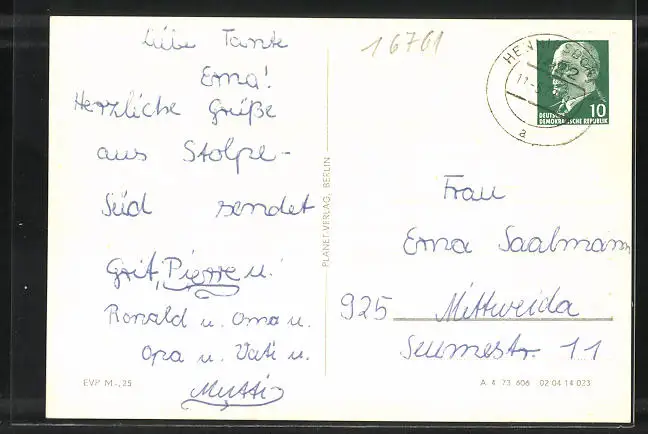 Liebe Tante
Erna!
Herzliche Grüße
aus Stolpe-
Süd sendet
Grit, Pierre u.
Ronald u. Oma u.
Opa u. Vati u.
Mutti
EVP M -,25
PLANET-VERLAG, BERLIN
16761
HENNIGSDORF
a
10
DEUTSCHE
DEMOKRATISCHE REPUBLIK
Frau
Erna Saalmann
925 Mittweida
Seumestr. 11
A 4 73 606 02 04 14 023